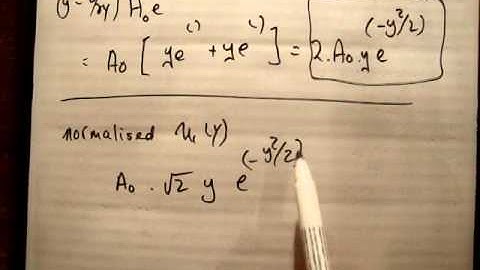 (y - ∂/∂y) A₀e
= A₀ [ ye⁽⁾ + ye⁽⁾ ] = 2.A₀.ye^(-y²/2)
normalised u₁(y)
A₀ . √2 y e^(-y²/2)